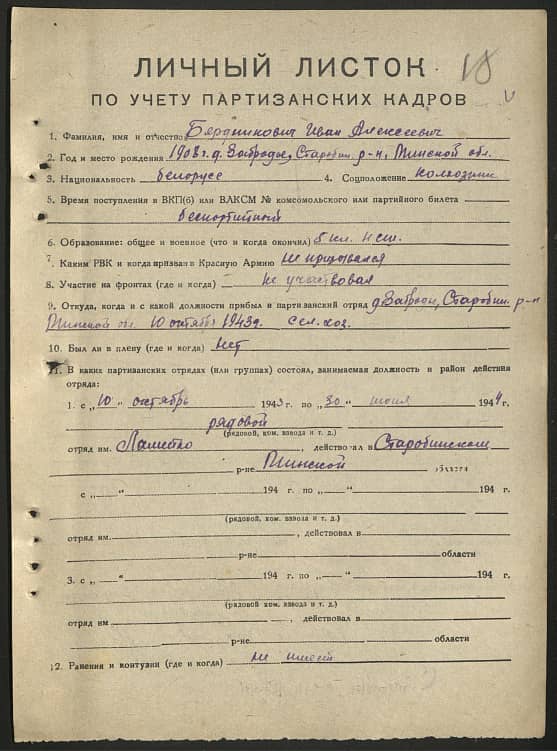 18
ЛИЧНЫЙ ЛИСТОК
ПО УЧЕТУ ПАРТИЗАНСКИХ КАДРОВ
1. Фамилия, имя и отчество Бердникович Иван Алексеевич
2. Год и место рождения 1908 г. д. Забродье, Старобин. р-н, Минской обл.
3. Национальность белорусс 4. Соцположение колхозник
5. Время поступления в ВКП(б) или ВЛКСМ № комсомольского или партийного билета
беспартийный
6. Образование: общее и военное (что и когда окончил) 5 кл. нсш.
7. Каким РВК и когда призван в Красную Армию не призывался
8. Участие на фронтах (где и когда) не участвовал
9. Откуда, когда и с какой должности прибыл в партизанский отряд д. Заброди, Старобин. р-н
Минской обл. 10 октября 1943 г. сел. хоз.
10. Был ли в плену (где и когда) нет
11. В каких партизанских отрядах (или группах) состоял, занимаемая должность и район действия
отряда:
1. с „10" октябрь 1943 г. по „30" июня 1944 г.
рядовой
(рядовой, ком. взвода и т. д.)
отряд им. , действовал в Старобинском
р-не Минской области
с „—" 194 г. по „—" 194 г.
(рядовой, ком. взвода и т. д.)
отряд им. , действовал в
р-не области
3. с „—" 194 г. по „—" 194 г.
(рядовой, ком. взвода и т. д.)
отряд им. , действовал в
р-не области
12. Ранения и контузии (где и когда) не имеет